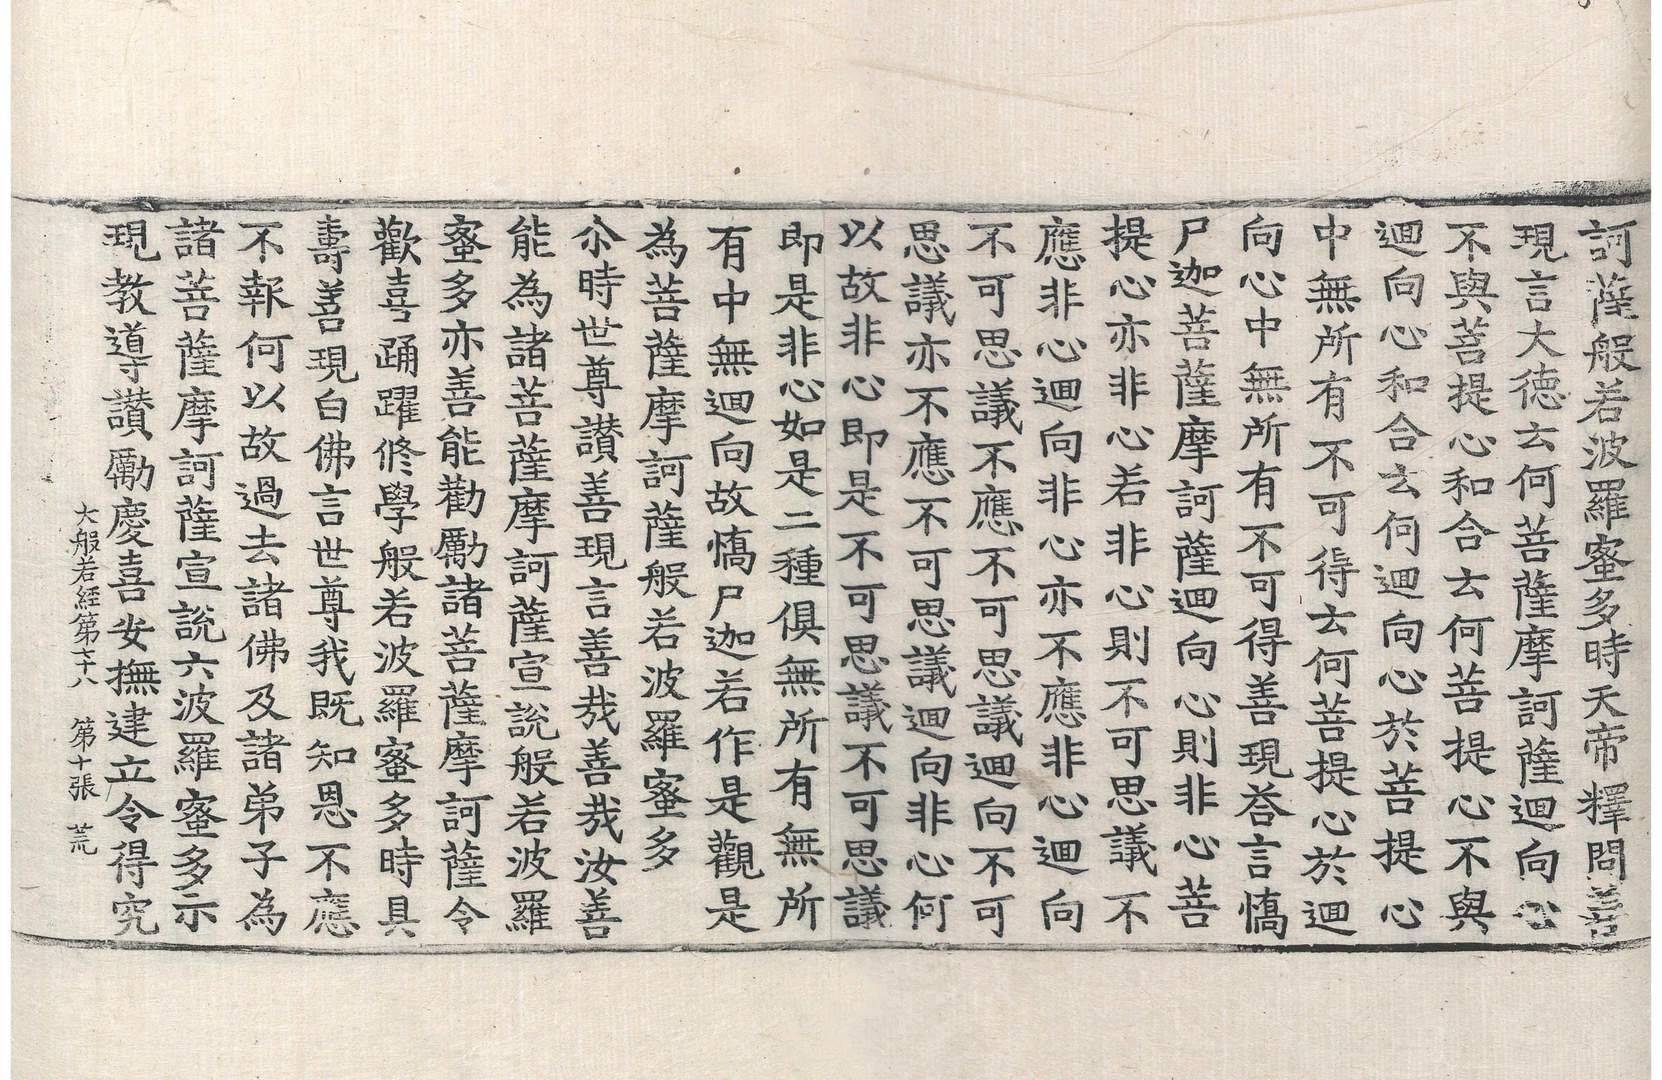 訶薩般若波羅蜜多時天帝釋問善
現言大德云何菩薩摩訶薩迴向心
不與菩提心和合云何菩提心不與
迴向心和合云何迴向心於菩提心
中無所有不可得云何菩提心於迴
向心中無所有不可得善現荅言憍
尸迦菩薩摩訶薩迴向心則非心菩
提心亦非心若非心則不可思議不
應非心迴向非心亦不應非心迴向
不可思議不應不可思議迴向不可
思議亦不應不可思議迴向非心何
以故非心即是不可思議不可思議
即是非心如是二種俱無所有無所
有中無迴向故憍尸迦若作是觀是
為菩薩摩訶薩般若波羅蜜多
尒時世尊讃善現言善㢤善㢤汝善
能為諸菩薩摩訶薩宣說般若波羅
蜜多亦善能勸勵諸菩薩摩訶薩令
歡喜踊躍修學般若波羅蜜多時具
壽善現白佛言世尊我既知恩不應
不報何以故過去諸佛及諸弟子為
諸菩薩摩訶薩宣說六波羅蜜多示
現教導讃勵慶喜安撫建立令得究
大般若經第七十八 第十張 荒